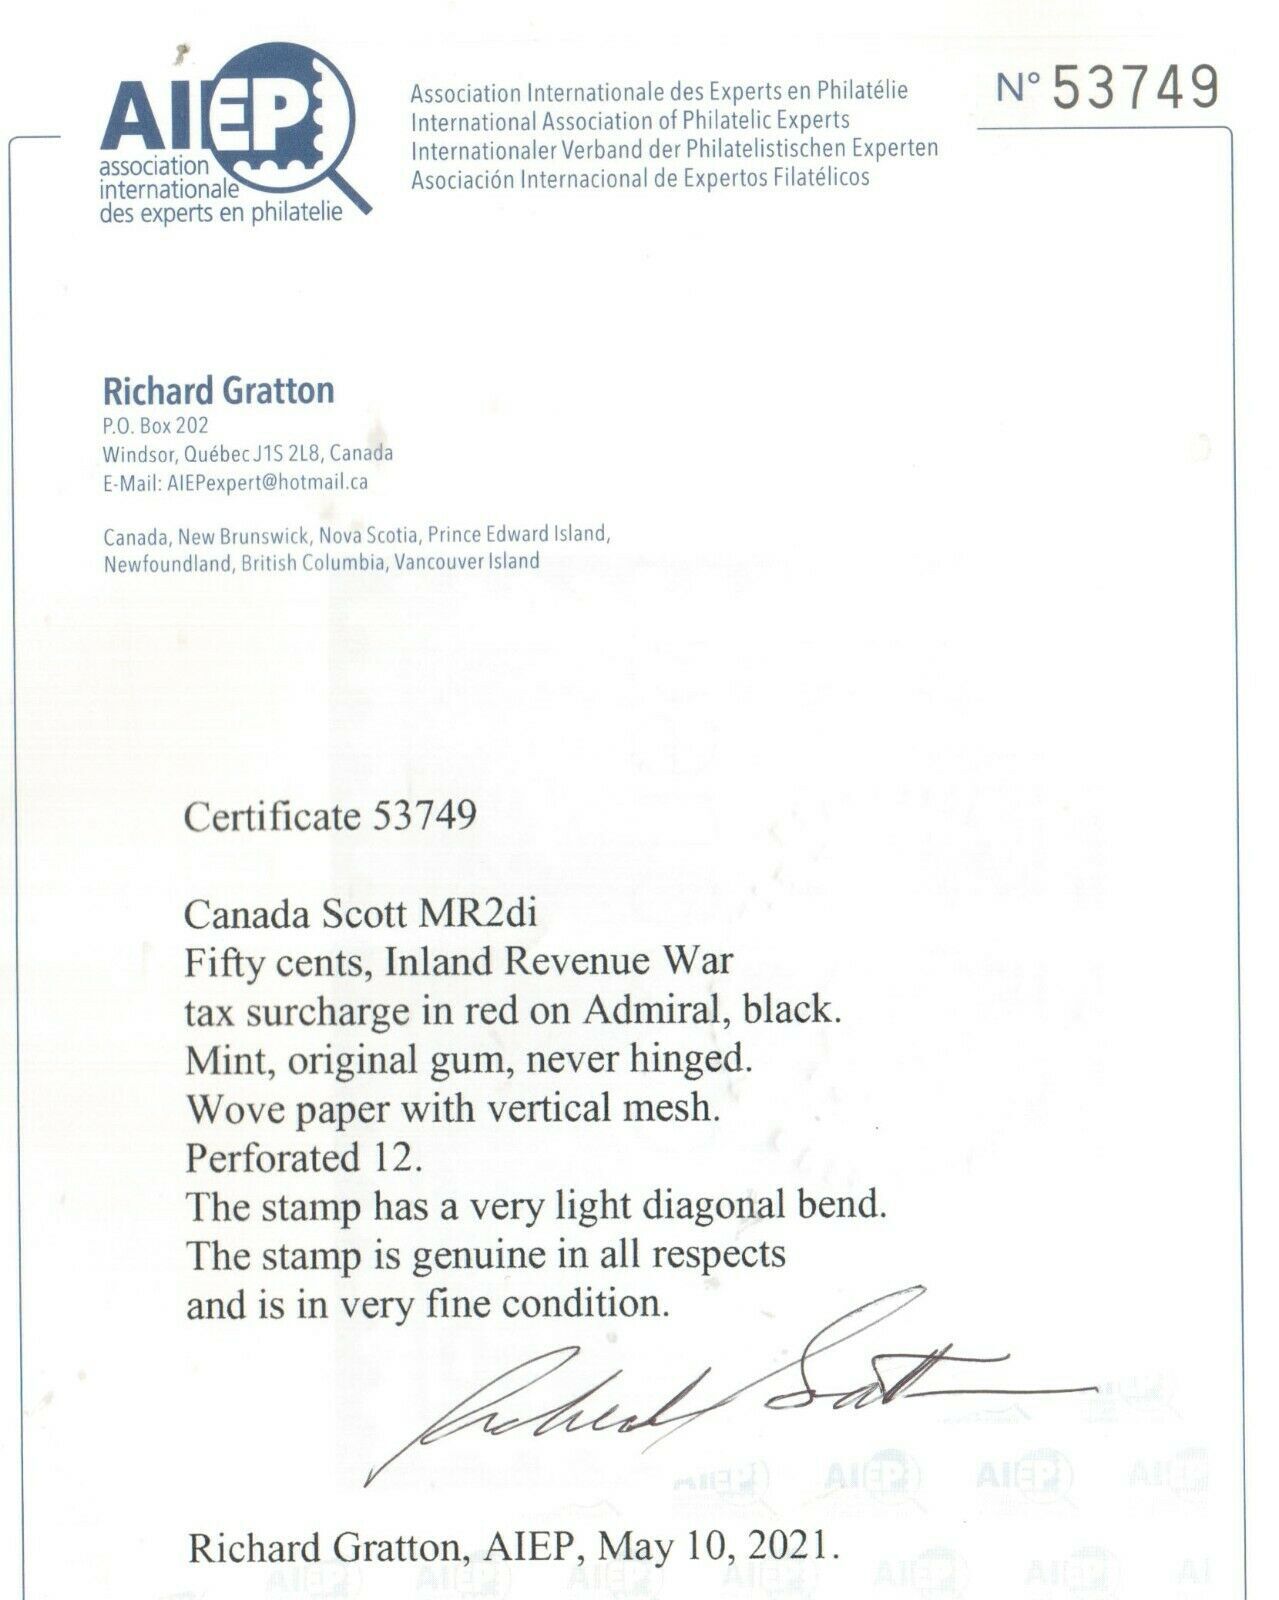 AIEP
association
internationale
des experts en philatelie
Association Internationale des Experts en Philatélie
International Association of Philatelic Experts
Internationaler Verband der Philatelistischen Experten
Asociación Internacional de Expertos Filatélicos
N° 53749
Richard Gratton
P.O. Box 202
Windsor, Québec J1S 2L8, Canada
E-Mail: AIEPexpert@hotmail.ca
Canada, New Brunswick, Nova Scotia, Prince Edward Island,
Newfoundland, British Columbia, Vancouver Island
Certificate 53749
Canada Scott MR2di
Fifty cents, Inland Revenue War
tax surcharge in red on Admiral, black.
Mint, original gum, never hinged.
Wove paper with vertical mesh.
Perforated 12.
The stamp has a very light diagonal bend.
The stamp is genuine in all respects
and is in very fine condition.
Richard Gratton
Richard Gratton, AIEP, May 10, 2021.